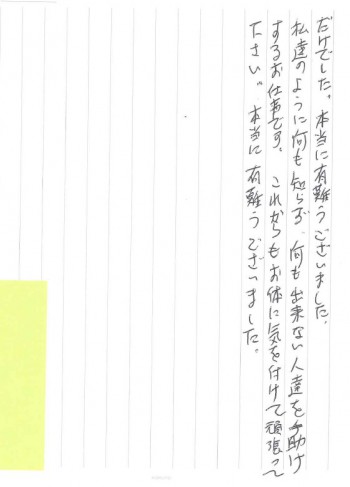 だけでした。本当に有難うございました。
私達のように何も知らず、何も出来ない人達を手助け
するお仕事です。これからもお体に気を付けて頑張って
下さい。本当に有難うございました。